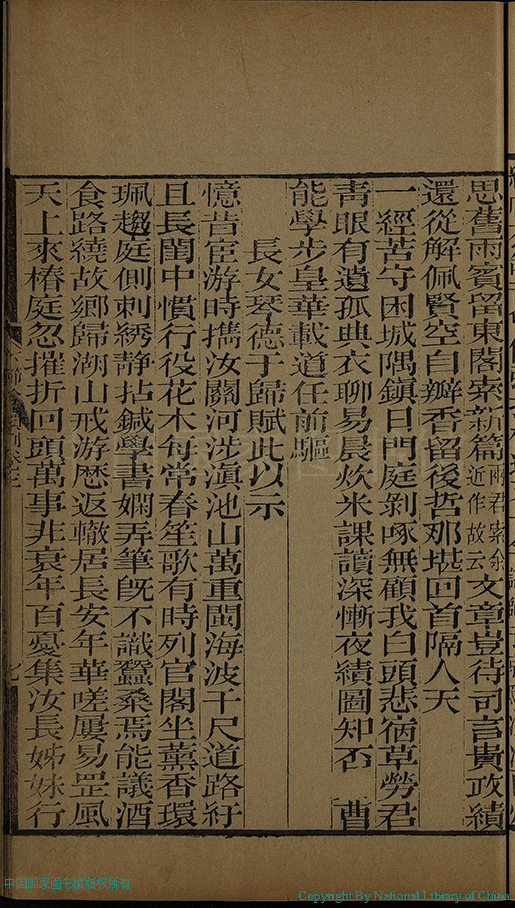 思舊雨賓留東閣索新篇兩君索余近作故云文章豈待司言貴政績
還從解佩賢空自瓣香留後哲那堪回首隔人天
一經苦守困城隅鎮日門庭剝啄無顧我白頭悲宿草勞君
青眼有遺孤典衣聊易晨炊米課讀深慚夜績圖知否曹
能學步皇華載道任前驅
長女琴德于歸賦此以示
憶昔宦游時攜汝關河涉滇池山萬重閩海波千尺道路紆
且長閨中慣行役花木每常春笙歌有時列官閣坐薰香環
珮趨庭側刺綉靜拈鍼學書嫻弄筆旣不識蠶桑焉能議酒
食路繞故鄉歸湖山戒游歴返轍居長安年華嗟屢易罡風
天上來椿庭忽摧折回頭萬事非衰年百憂集汝長姊妹行
卷三
七
中国国家图书馆版权所有
Copyright By National Library of China